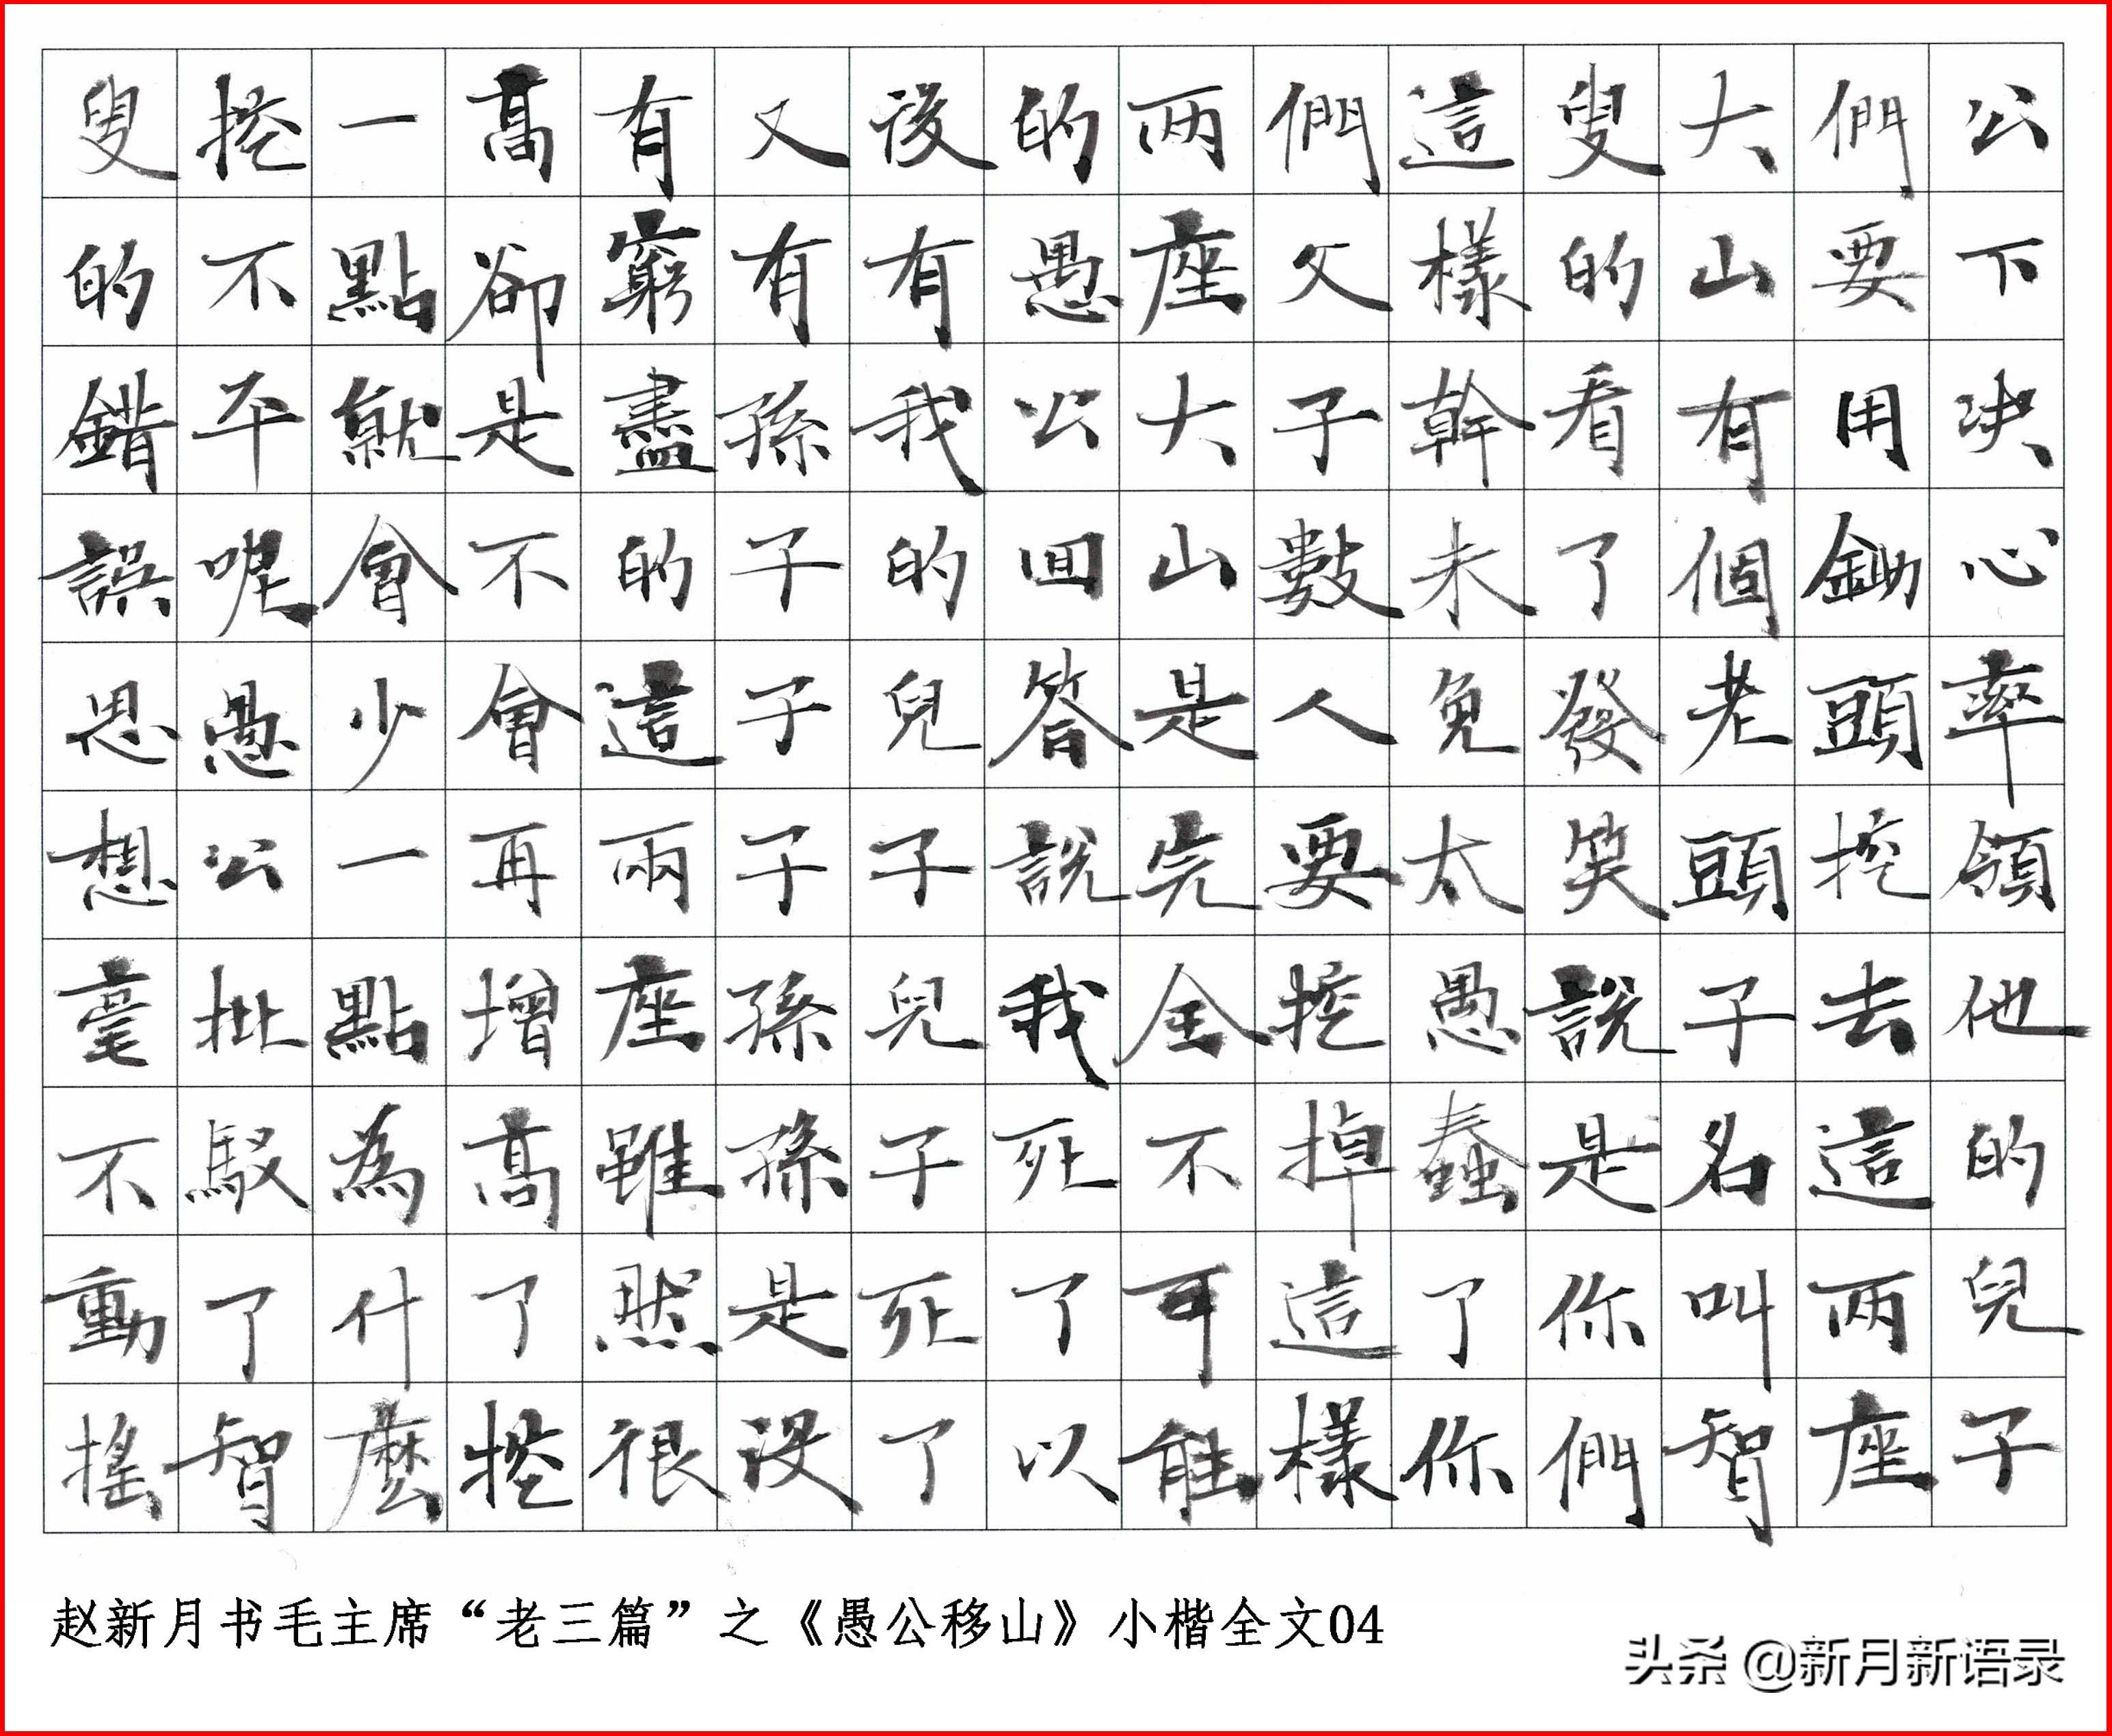 公下决心率領他的兒子
們要用鋤頭挖去這两座
大山有個老頭子名叫智
叟的看了發笑說是你們
這樣幹未免太愚蠢了你
們父子數人要挖掉這樣
两座大山是完全不可能
的愚公回答說我死了以
後有我的兒子兒子死了
又有孫子子子孫孫是没
有窮盡的這兩座雖然很
高卻是不會再增高了挖
一點就會少一點為什麼
挖不平呢愚公批駁了智
叟的錯誤思想毫不動搖
赵新月书毛主席“老三篇”之《愚公移山》小楷全文04
头条 @新月新语录